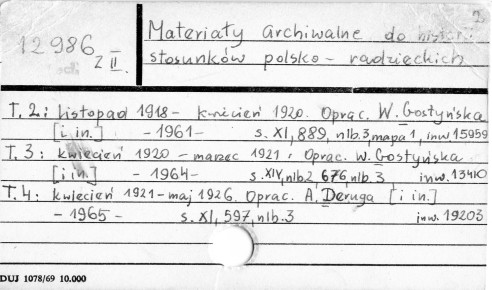 2
12986
Z II.
Materiały archiwalne do histori
stosunków polsko - radzieckich
T. 2: listopad 1918 - kwiecień 1920. Oprac. W. Gostyńska
[i in.] - 1961 - s. XI, 889, nlb. 3, mapa 1, inw 15959
T. 3: kwiecień 1920 - marzec 1921. Oprac. W. Gostyńska
[i in.] - 1964 - s. XIV, nlb. 2, 676, nlb. 3 inw. 13410
T. 4: kwiecień 1921 - maj 1926. Oprac. A. Deruga [i in]
- 1965 - s. XI, 597, nlb. 3 inw. 19203
DUJ 1078/69 10.000